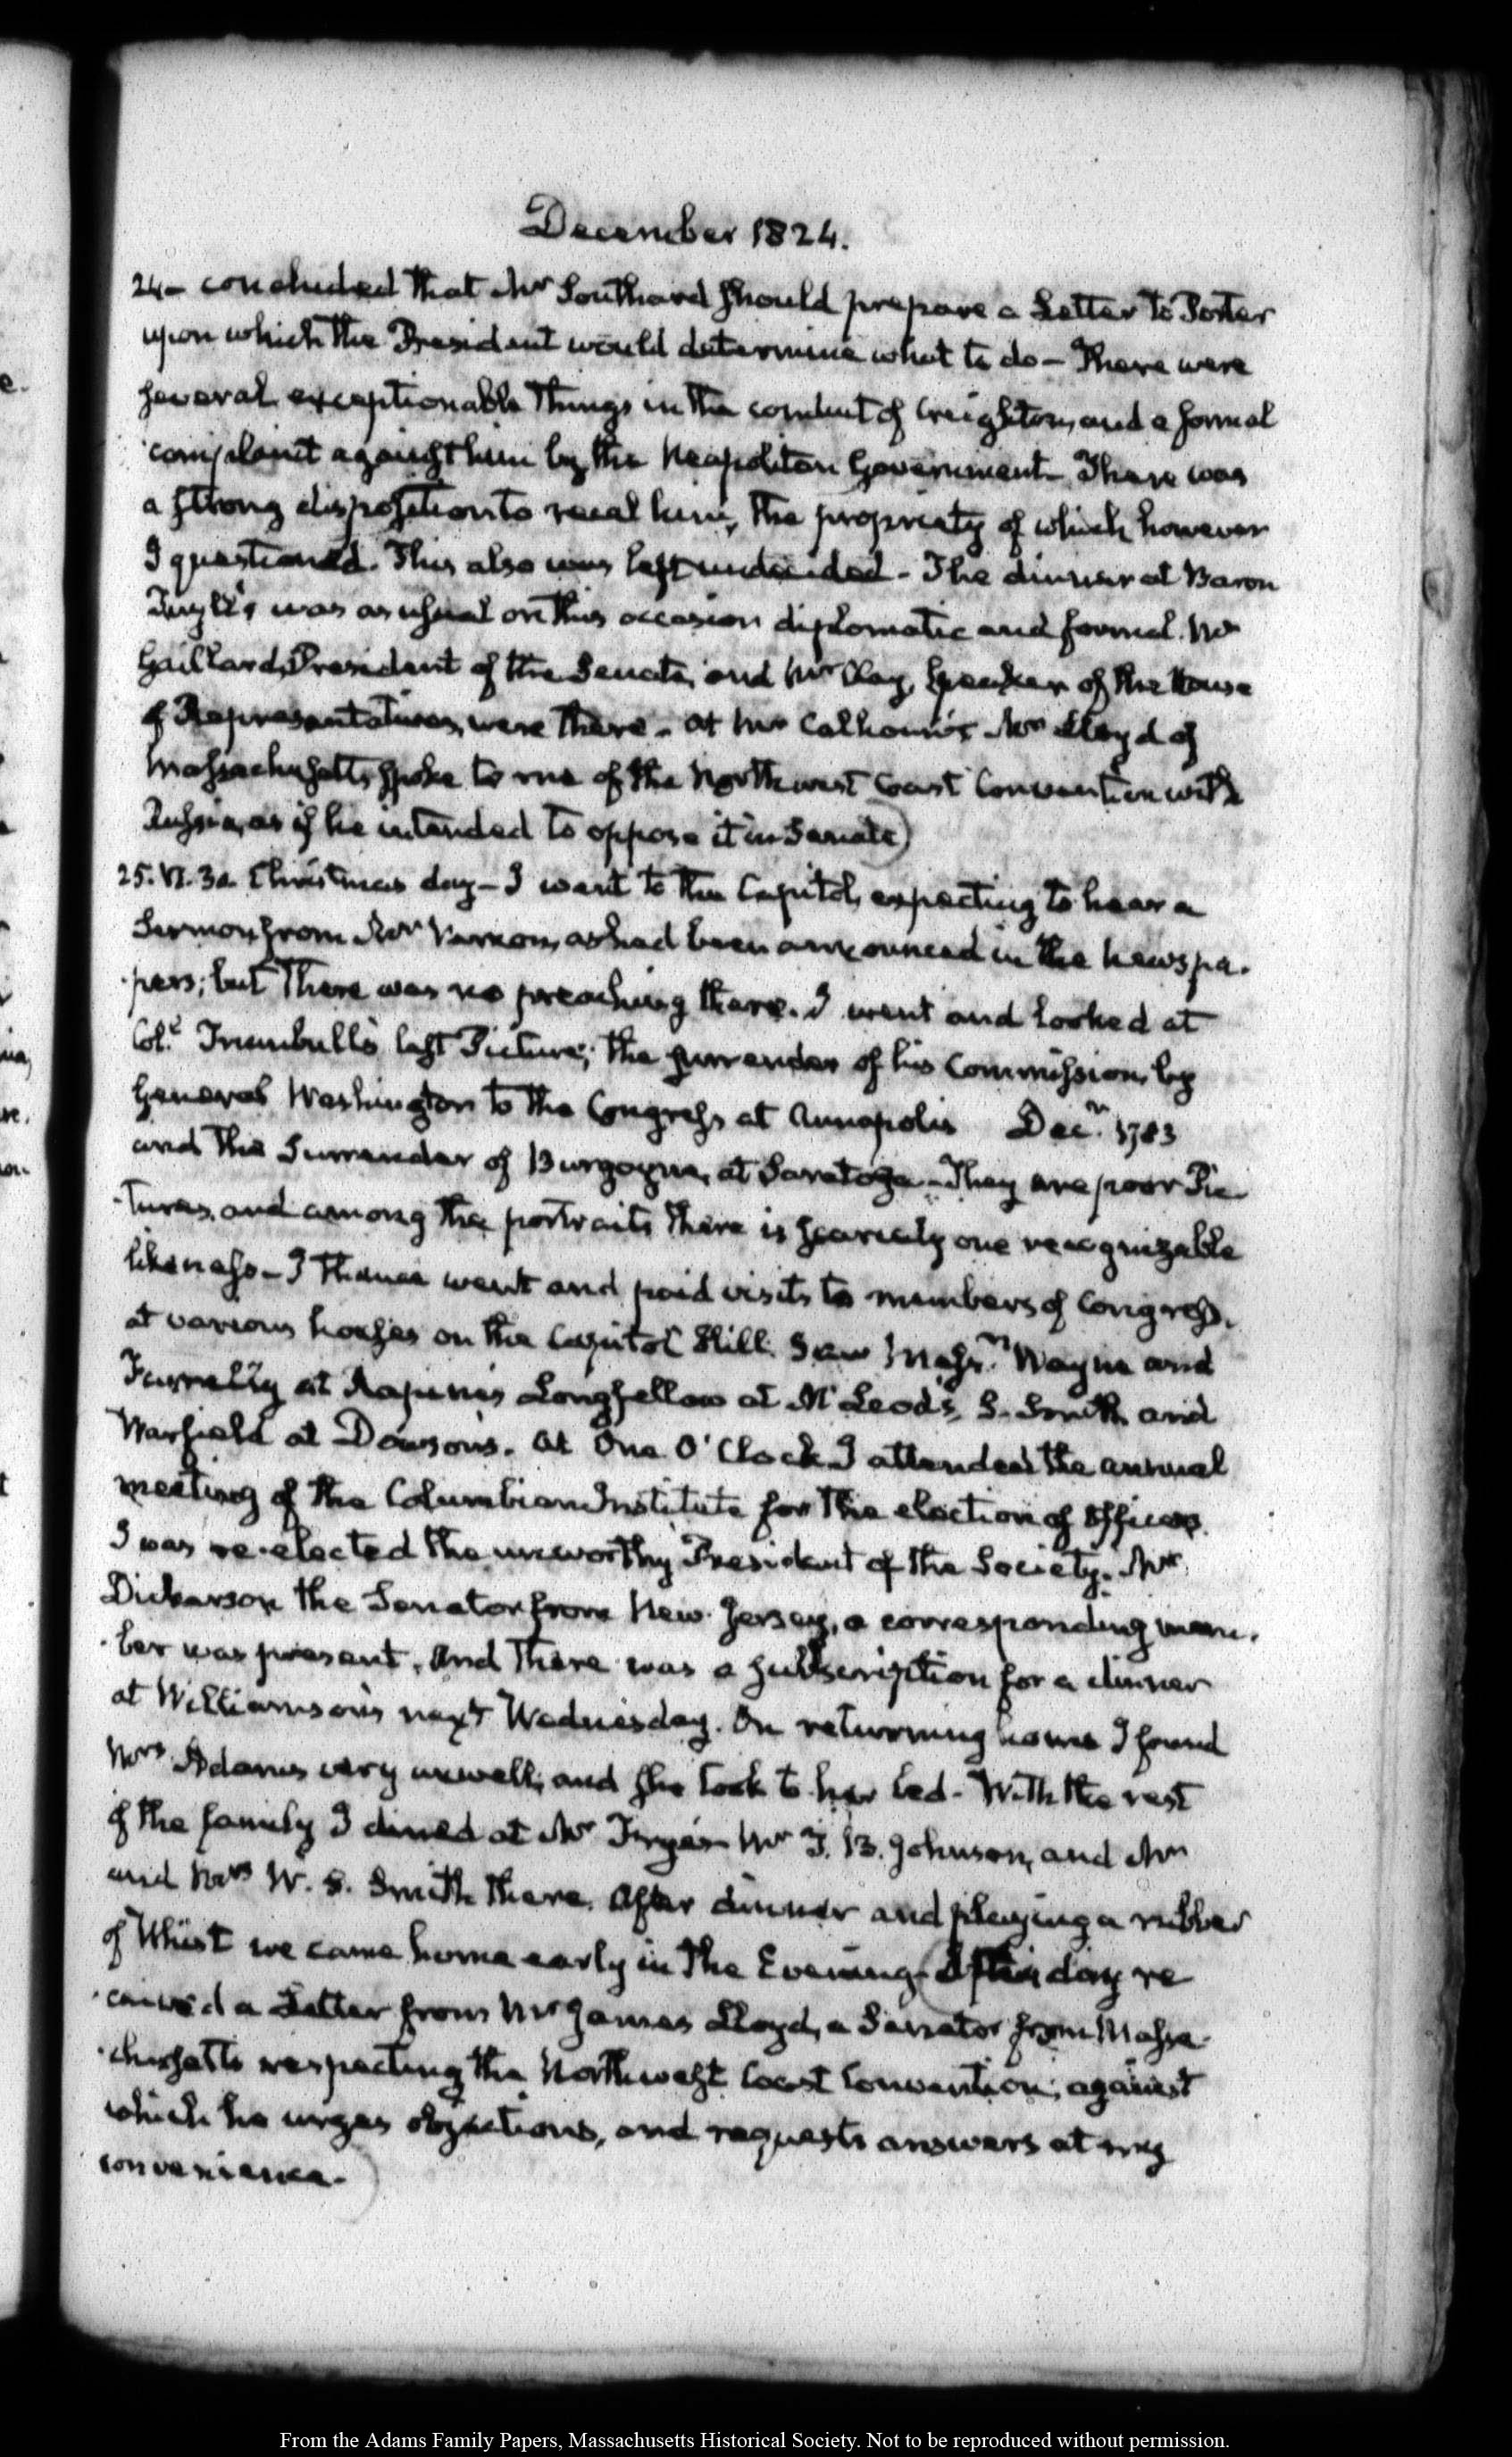 December 1824.
24– concluded that Mr Southard should prepare a Letter to Porter
upon which the President would determine what to do – There were
several exceptionable things in the conduct of Creighton, and a formal
complaint against him by the Neapolitan Government – There was
a strong disposition to recal him, the propriety of which however
I questioned. This also was left undecided – The dinner at Baron
Tuyll's was as usual on this occasion diplomatic and formal. Mr
Gaillard, President of the Senate, and Mr Clay, Speaker of the House
of Representatives, were there – at Mr Calhoun's Mr Lloyd of
Massachusetts, spoke to me of the Northwest Coast Convention with
Russia, as if he intended to oppose it in Senate)
25. VI. 30. Christmas day – I went to the Capitol, expecting to hear a
Sermon from Mr Vernon, as had been announced in the newspa-
-pers; but there was no preaching there. I went and looked at
Col.l Trumbull's last Picture; the surrender of his Commission, by
General Washington to the Congress at Annapolis Dec.r 1783
and the Surrender of Burgoyne, at Saratoga – They are poor Pic-
-tures, and among the portraits there is scarcely one recognizable
likeness – I thence went and paid visits to members of Congress,
at various houses on the Capitol Hill. Saw Mess.rs Wayne and
at Longfellow at McLeod's, S. Smith and
Warfield at Dawson's. At One O'Clock I attended the annual
meeting of the Columbian Institute for the election of Officers.
I was re-elected the unworthy President of the Society. Mr
Dickerson the Senator from New-Jersey, a corresponding mem-
-ber was present, and there was a subscription for a dinner
at Williamson's next Wednesday. On returning home I found
Mrs Adams very unwell, and she took to her bed – With the rest
of the family I dined at Mr Frye's – Mr T. B. Johnson, and Mr
and Mrs W. S. Smith there. After dinner and playing a rubber
of Whist we came home early in the Evening – (I this day re
-ceived a Letter from Mr James Lloyd, a Senator from Massa-
-chusetts respecting the Northwest Coast Convention; against
which he urges objections, and requests answers at my
convenience –)
From the Adams Family Papers, Massachusetts Historical Society. Not to be reproduced without permission.